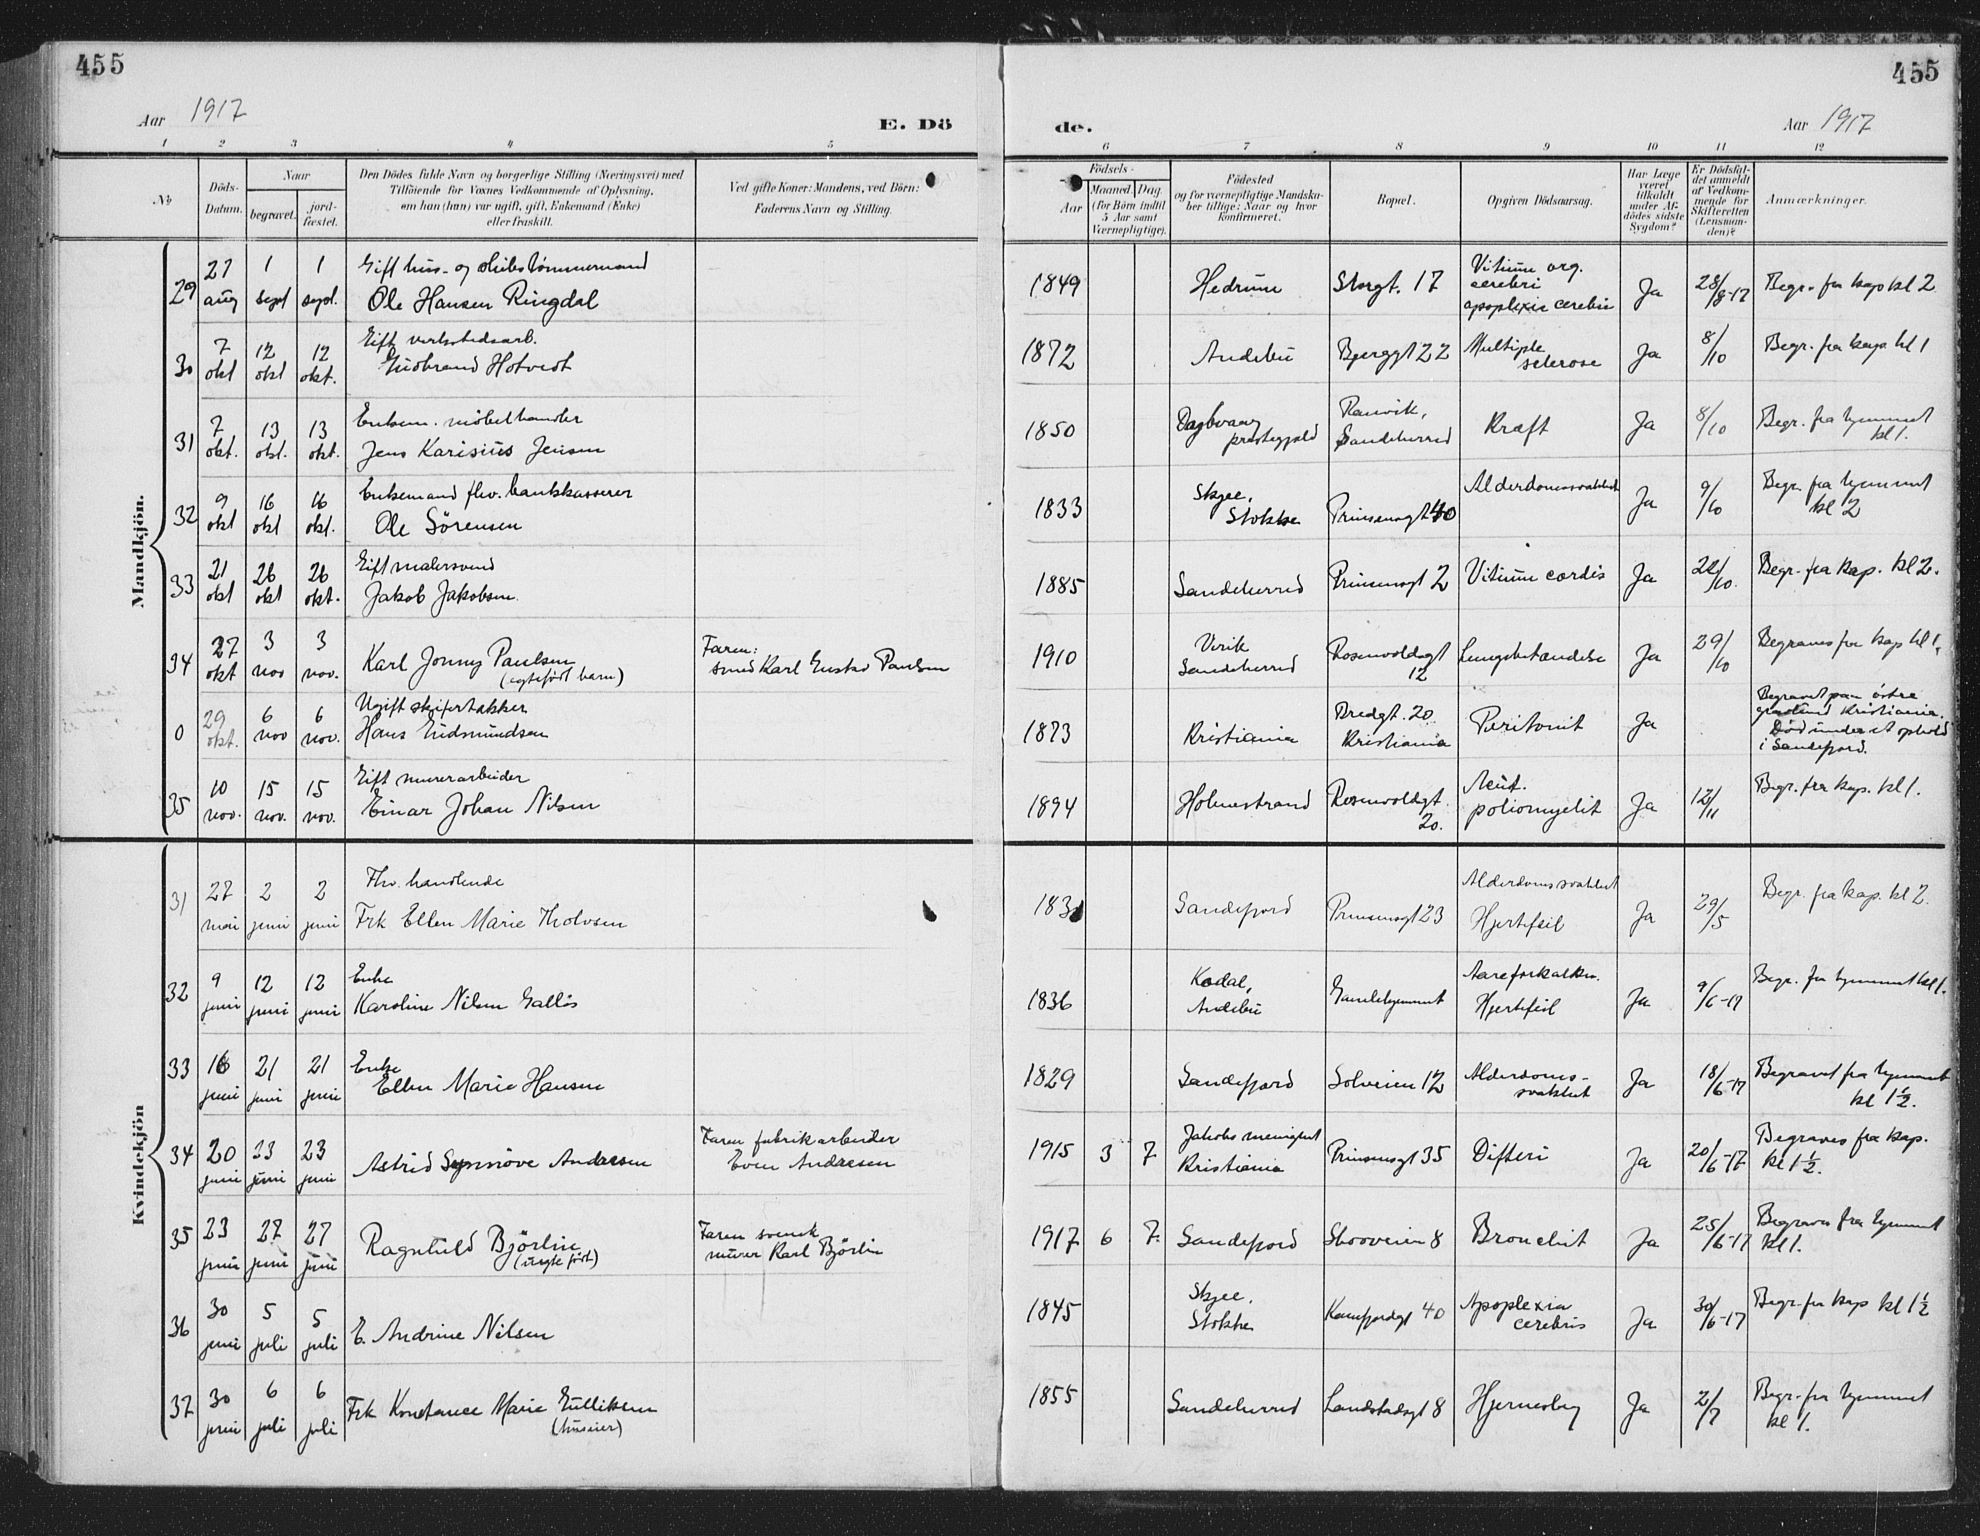 455
455
Aar 1917
E. Dö
de.
Aar 1917
1 2 3 4 5
6 7 8 9 10 11 12
No
Döds-
Datum.
Naar
begravet.
jord-
fæstet.
Den Dödes fulde Navn og borgerlige Stilling (Næringsvei) med
Tilföiende for Voxnes Vedkommende af Oplysning,
om han (hun) var ugift, gift, Enkemand (Enke)
eller fraskilt.
Ved gifte Koner: Mandens, ved Börn:
Faderens Navn og Stilling.
Födsels-
Aar
Maaned. Dag.
(for Börn indtil
5 Aar samt
Værnepligtige).
Födested
og for værnepligtige Mandska-
ber tillige: Naar og hvor
konfirmeret.
Bopæl.
Opgiven Dödsaarsag.
Har Læge
været
tilkaldt
under Af-
dödes sidste
Sygdom?
Er Dödsfal-
det anmeldt
af Vedkom-
mende for
Skifteretten
(Lensman-
den)?
Anmærkninger.
Mandkjön.
29
27
aug
1
sept
1
sept.
Gift hus- og skibstömmermand
Ole Hansen Ringdal
1849
Hedrum
Storgt. 17
Vitium org.
cerebri
apoplexia cerebri
Ja
28/8-17
Begr. fra kap kl 2
30
7
okt
12
okt
12
okt.
Gift verkstedsarb.
Gudbrand Hotvedt
1872
Andebu
Bjerggt 22
Multiple
sclerose
Ja
8/10
Begr. fra kap kl 1
31
7
okt.
13
okt.
13
okt.
Enkem. möbelhandler
Jens Karisius Jensen
1850
prestegjeld
Ranvik,
Sandeherred
Kræft
Ja
8/10
Begr. fra hjemmet
kl 1.
32
9
okt
16
okt
16
okt.
Enkemand fhv. bankkasserer
Ole Sörensen
1833
Skjee,
Stokke
Prinsensgt 40
Alderdomssvakhet
Ja
9/10
Begr. fra hjemmet
kl 2
33
21
okt
26
okt
26
okt.
Gift malersvend
Jakob Jakobsen
1885
Sandeherred
Prinsensgt 2
Vitium cordis
Ja
22/10.
Begr. fra kap. kl 2.
34
27
okt
3
nov
3
nov.
Karl Jonny Paulsen
(egtefödt barn)
Faren:
smed Karl Gustav Paulsen
1910
Virik
Sandeherred
Rosenvoldsgt
12
Lungebetændelse
Ja
29/10
Begraves fra kap kl 1,
0
29
okt.
6
nov
6
nov.
Ugift skifertækker
Hans Gudmundsen
1873
Kristiania
Bredgt. 20
Kristiania
Peritonit
Ja
Begravet paa östre
gravlund Kristiania.
Död under et ophold
i Sandefjord.
35
10
nov.
15
nov.
15
nov.
Gift murerarbeider
Einar Johan Nilsen
1894
Holmestrand
Rosenvoldsgt.
20.
Acut.
poliomyelit
Ja
12/11
Begr. fra kap. kl 1.
Kvindekjön
31
27
mai
2
juni
2
juni
Fhv. handlende
Frk Ellen Marie Tholvsen
Sandefjord
Prinsensgt 23
Alderdomssvakhet
Hjertefeil
Ja
29/5
Begr. fra kap. kl 2.
32
9
juni
12
juni
12
juni
Enke
Karoline Nilsen Galläs
1836
Kodal,
Andebu
Gamlehjemmet
Aareforkalkn.
Hjertefeil
Ja
9/6-17
Begr. fra hjemmet kl 1.
33
16
juni
21
juni
21
juni
Enke
Ellen Marie Hansen
1829
Sandefjord
Solveien 12
Alderdoms-
svakhet
Ja
18/6-17
Begravet fra hjemmet
kl 1½.
34
20
juni
23
juni
23
juni
Astrid Synnöve Andresen
Faren fabrikarbeider
Even Andresen
1915
3
7
Jakobs menighet
Kristiania
Prinsensgt 35
Difteri
Ja
20/6-17
Begraves fra kap.
kl 1½.
35
23
juni
27
juni
27
juni
Ragnhild Björlin
(uegte födt)
Faren svensk
murer Karl Björlin
1917
6
7.
Sandefjord
Skoveien 8
Bronchit
Ja
25/6-17
Begraves fra hjemmet
kl 1.
36
30
juni
5
juli
5
juli
E. Andrine Nilsen
1845
Skjee,
Stokke
Kamfjordgt 40
Apoplexia
cerebris
Ja
30/6-17
Begr. fra kap kl 1½
37
30
juni
6
juli
6
juli
Frk Konstance Marie Gulliksen
(huseier)
1855
Sandeherred
Landstadsgt 8
Hjerneslag
Ja
2/7
Begr. fra hjemmet
kl 1.